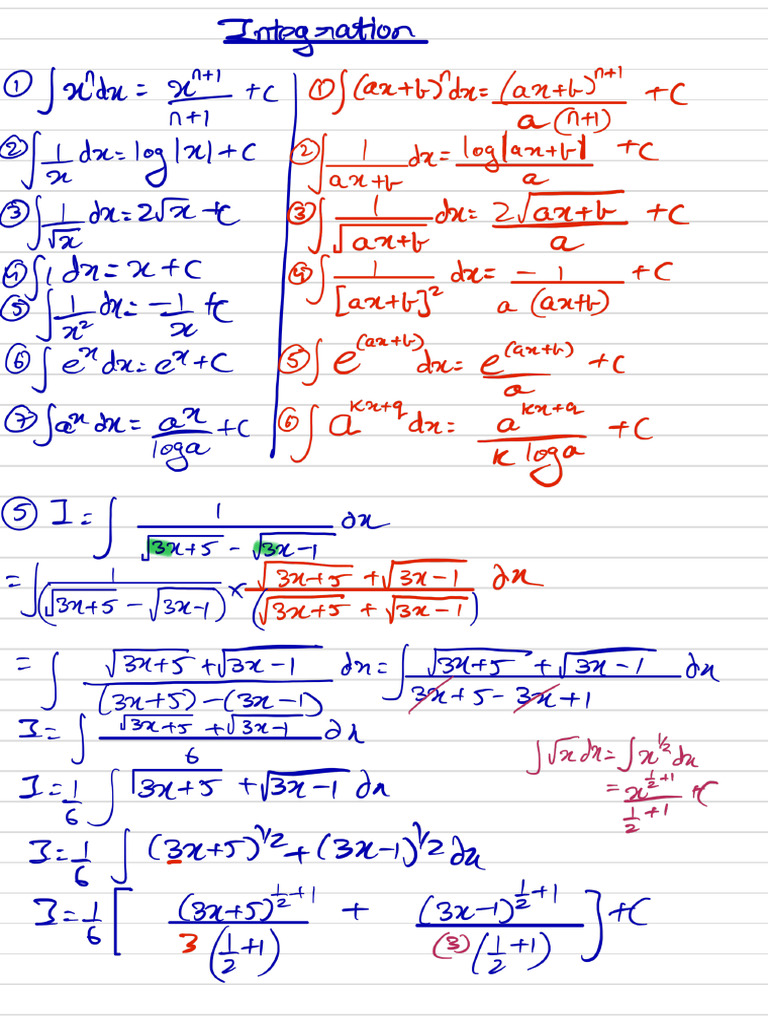 Integration
① ∫xⁿdx = xⁿ⁺¹/(n+1) + C
② ∫1/x dx = log|x| + C
③ ∫1/√x dx = 2√x + C
④ ∫1 dx = x + C
⑤ ∫1/x² dx = -1/x + C
⑥ ∫eˣ dx = eˣ + C
⑦ ∫aˣ dx = aˣ/loga + C
① ∫(ax+b)ⁿdx = (ax+b)ⁿ⁺¹/(a(n+1)) + C
② ∫1/(ax+b) dx = log|ax+b|/a + C
③ ∫1/√(ax+b) dx = 2√(ax+b)/a + C
④ ∫1/[ax+b]² dx = -1/(a(ax+b)) + C
⑤ ∫e^(ax+b) dx = e^(ax+b)/a + C
⑥ ∫a^(kx+q) dx = a^(kx+q)/(k loga) + C
⑤ I = ∫ 1/(√(3x+5) - √(3x-1)) dx
= ∫ 1/(√(3x+5) - √(3x-1)) × (√(3x+5) + √(3x-1))/(√(3x+5) + √(3x-1)) dx
= ∫ (√(3x+5) + √(3x-1))/((3x+5)-(3x-1)) dx = ∫ (√(3x+5) + √(3x-1))/(3x+5-3x+1) dx
I = ∫ (√(3x+5) + √(3x-1))/6 dx
∫√x dx = ∫x^(1/2) dx
= x^(1/2+1)/(1/2+1) + C
I = 1/6 ∫ √(3x+5) + √(3x-1) dx
I = 1/6 ∫ (3x+5)^(1/2) + (3x-1)^(1/2) dx
I = 1/6 [ (3x+5)^(1/2+1)/(3(1/2+1)) + (3x-1)^(1/2+1)/((3)(1/2+1)) ] + C